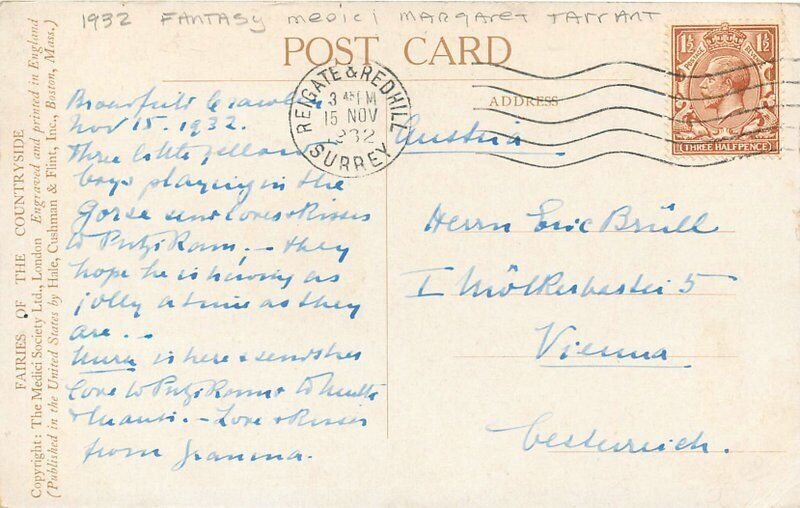 1932 FANTASY MEDICI MARGARET TARRANT
POST CARD
ADDRESS
REIGATE & REDHILL
3 45 PM
15 NOV
1932
SURREY
1½ 1½
POSTAGE REVENUE
THREE HALFPENCE
FAIRIES OF THE COUNTRYSIDE
Copyright: The Medici Society Ltd., London Engraved and printed in England
(Published in the United States by Hale, Cushman & Flint, Inc., Boston, Mass.)
Broadfield Crawley
Nov 15. 1932.
Three little yellow
boys playing in the
gorse send loves & kisses
to Putzi Ram; – they
hope he is having as
jolly a time as they
are. –
is here & sends her
love to Putzi Ram & to
& – Love & kisses
from
Austria
Herrn Eric Brüll
I Mölkerbastei 5
Vienna
Oesterreich.